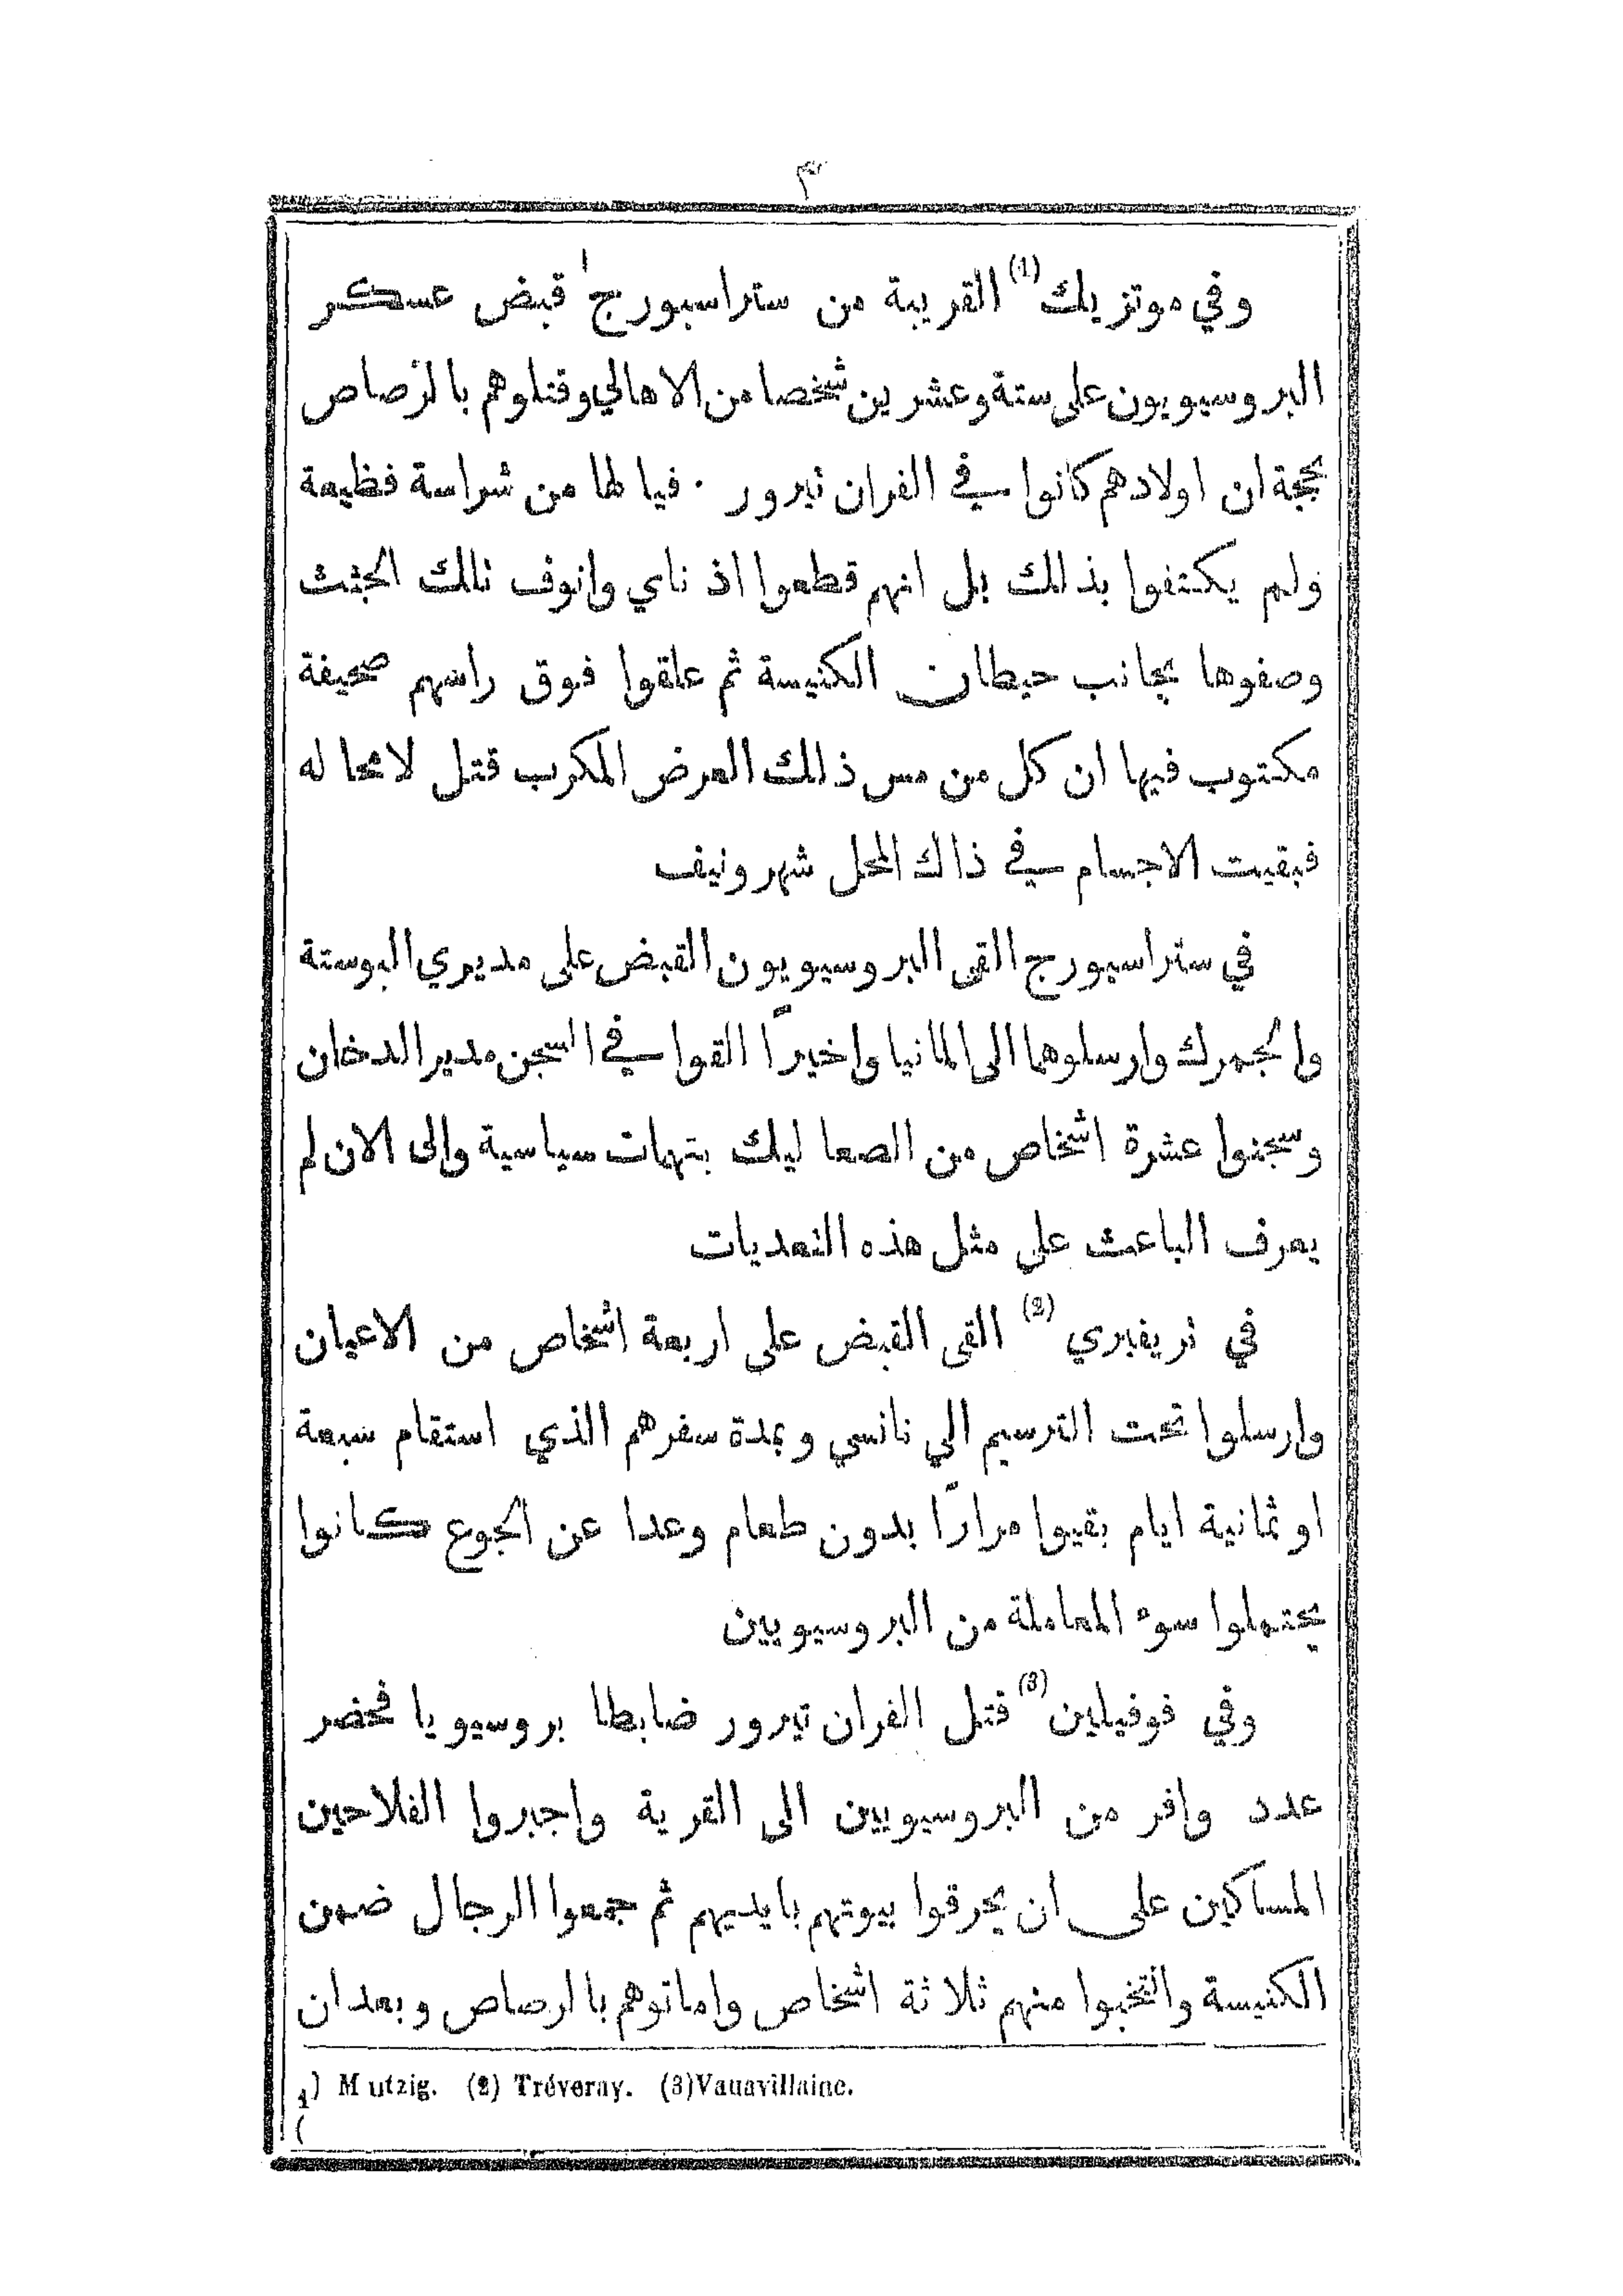 ٣
وفي موتزيك(1) القريبة من ستراسبورج قبض عسكر
البروسيويون على ستة وعشرين شخصا من الاهالي وقتلوهم بالرصاص
بحجة ان اولادهم كانوا في الفران تيرور . فيا لها من شراسة فظيعة
ولم يكتفوا بذلك بل انهم قطعوا اذناي وانوف تلك الجثث
وصفوها بجانب حيطان الكنيسة ثم علقوا فوق راسهم صحيفة
مكتوب فيها ان كل من مس ذلك العرض المكرب قتل لا محاله
فبقيت الاجسام في ذاك المحل شهر ونيف
في ستراسبورج القى البروسيويون القبض على مديري البوستة
والجمرك وارسلوهما الى المانيا واخيرًا القوا في السجن مدير الدخان
وسجنوا عشرة اشخاص من الصعاليك بتهمات سياسية والى الان لم
يعرف الباعث على مثل هذه التعديات
في تريفيري(2) القى القبض على اربعة اشخاص من الاعيان
وارسلوا تحت الترسيم الي نانسي وبمدة سفرهم الذي استقام سبعة
او ثمانية ايام بقيوا مرارًا بدون طعام وعدا عن الجوع كانوا
يحتملوا سوء المعاملة من البروسيويين
وفي فوفيلين(3) قتل الفران تيرور ضابطا بروسيويا فحضر
عدد وافر من البروسيويين الى القرية واجبروا الفلاحين
المساكين على ان يحرقوا بيوتهم بايديهم ثم جمعوا الرجال ضمن
الكنيسة وانتخبوا منهم ثلاثة اشخاص واماتوهم بالرصاص وبعد ان
1) Mutzig. (2) Tréveray. (3)Vauavillaine.
(